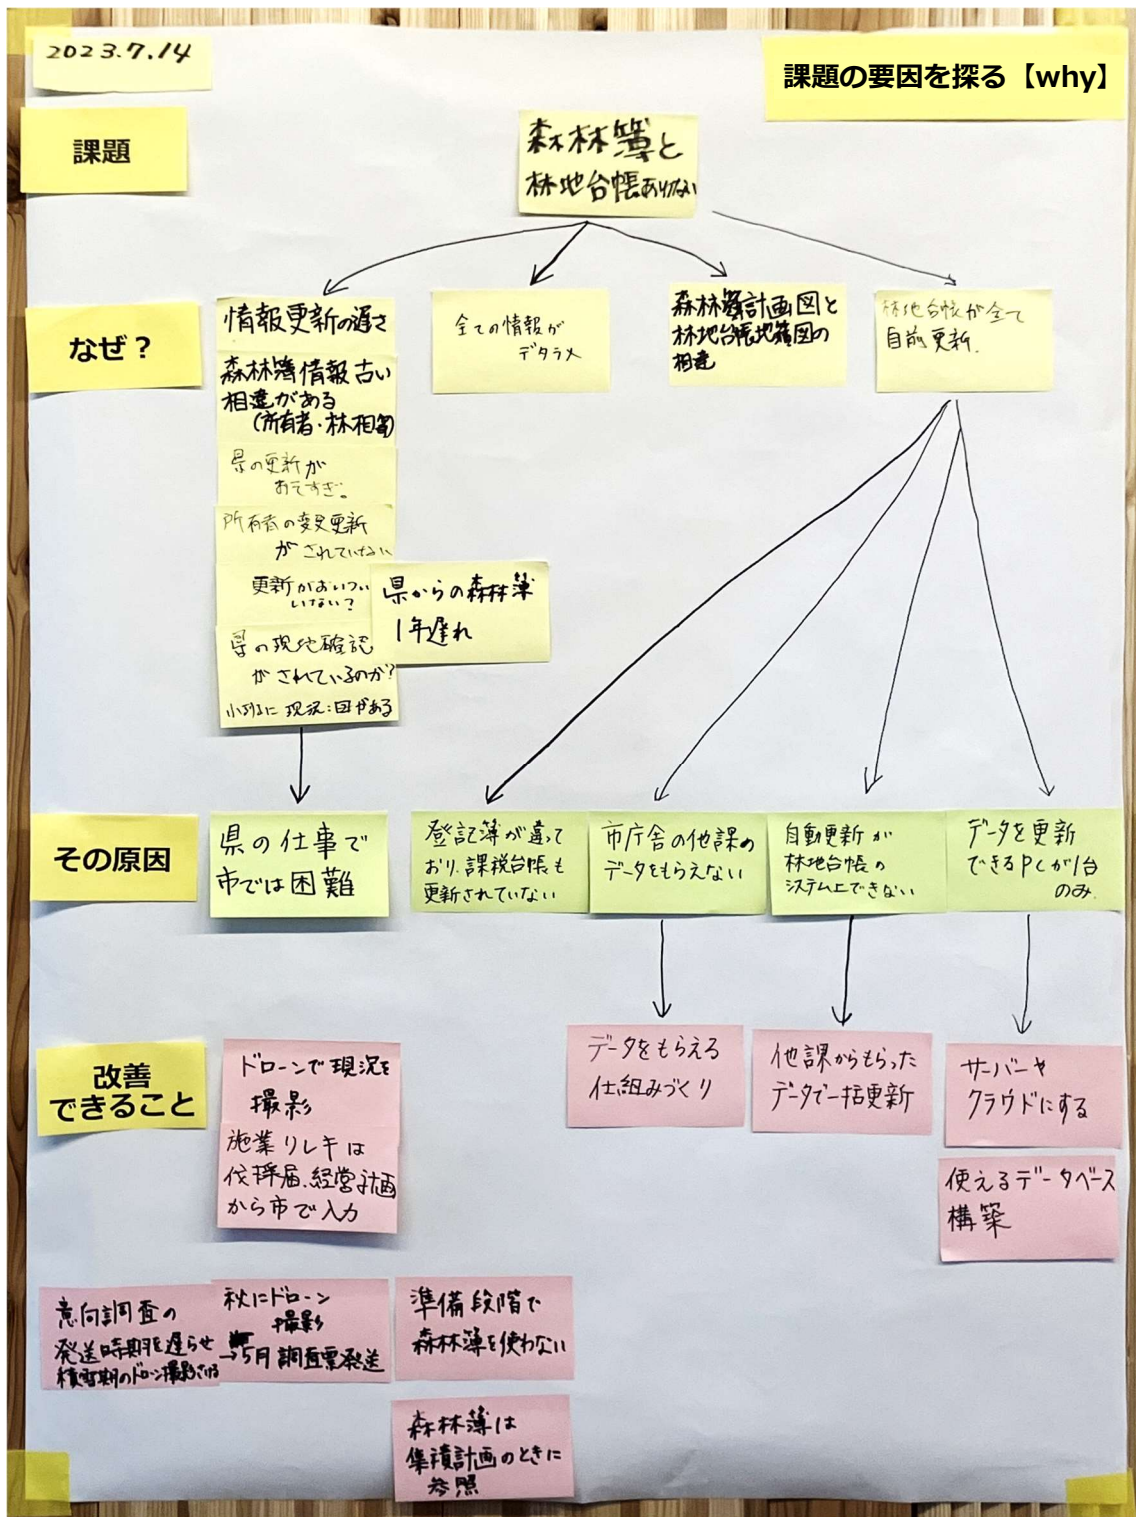 2023.7.14
課題の要因を探る【why】
課題
森林簿と
林地台帳
なぜ？
情報更新の遅さ
森林簿情報古い
相違がある
(所有者・林相等)
県の更新が
おそすぎ。
所有者の変更更新
がされていない
更新がおいつい
いない？
県からの森林簿
1年遅れ
県の現地確認
がされているのか？
小班に現況:田がある
全ての情報が
デタラメ
森林簿計画図と
林地台帳地籍図の
相違
林地台帳が全て
自前更新.
その原因
県の仕事で
市では困難
登記簿が違って
おり.課税台帳も
更新されていない
市庁舎の他課の
データをもらえない
自動更新が
林地台帳の
システム上できない
データを更新
できるPCが1台
のみ.
改善
できること
ドローンで現況を
撮影
施業リレキは
伐採届.経営計画
から市で入力
データをもらえる
仕組みづくり
他課からもらった
データで一括更新
サーバーや
クラウドにする
使えるデータベース
構築
意向調査の
発送時期を遅らせ
積雪期のドローン撮影さける
秋にドローン
撮影
→5月調査票発送
準備段階で
森林簿を使わない
森林簿は
集積計画のときに
参照